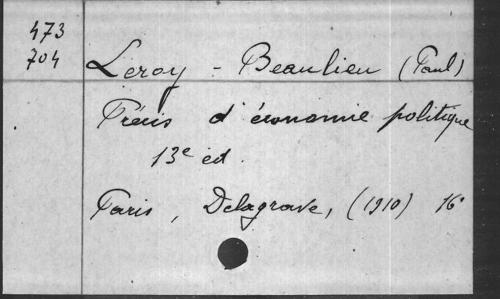 473
704
Leroy - Beaulieu (Paul)
Précis d'économie politique
13e éd.
Paris, Delagrave, (1910) 16°